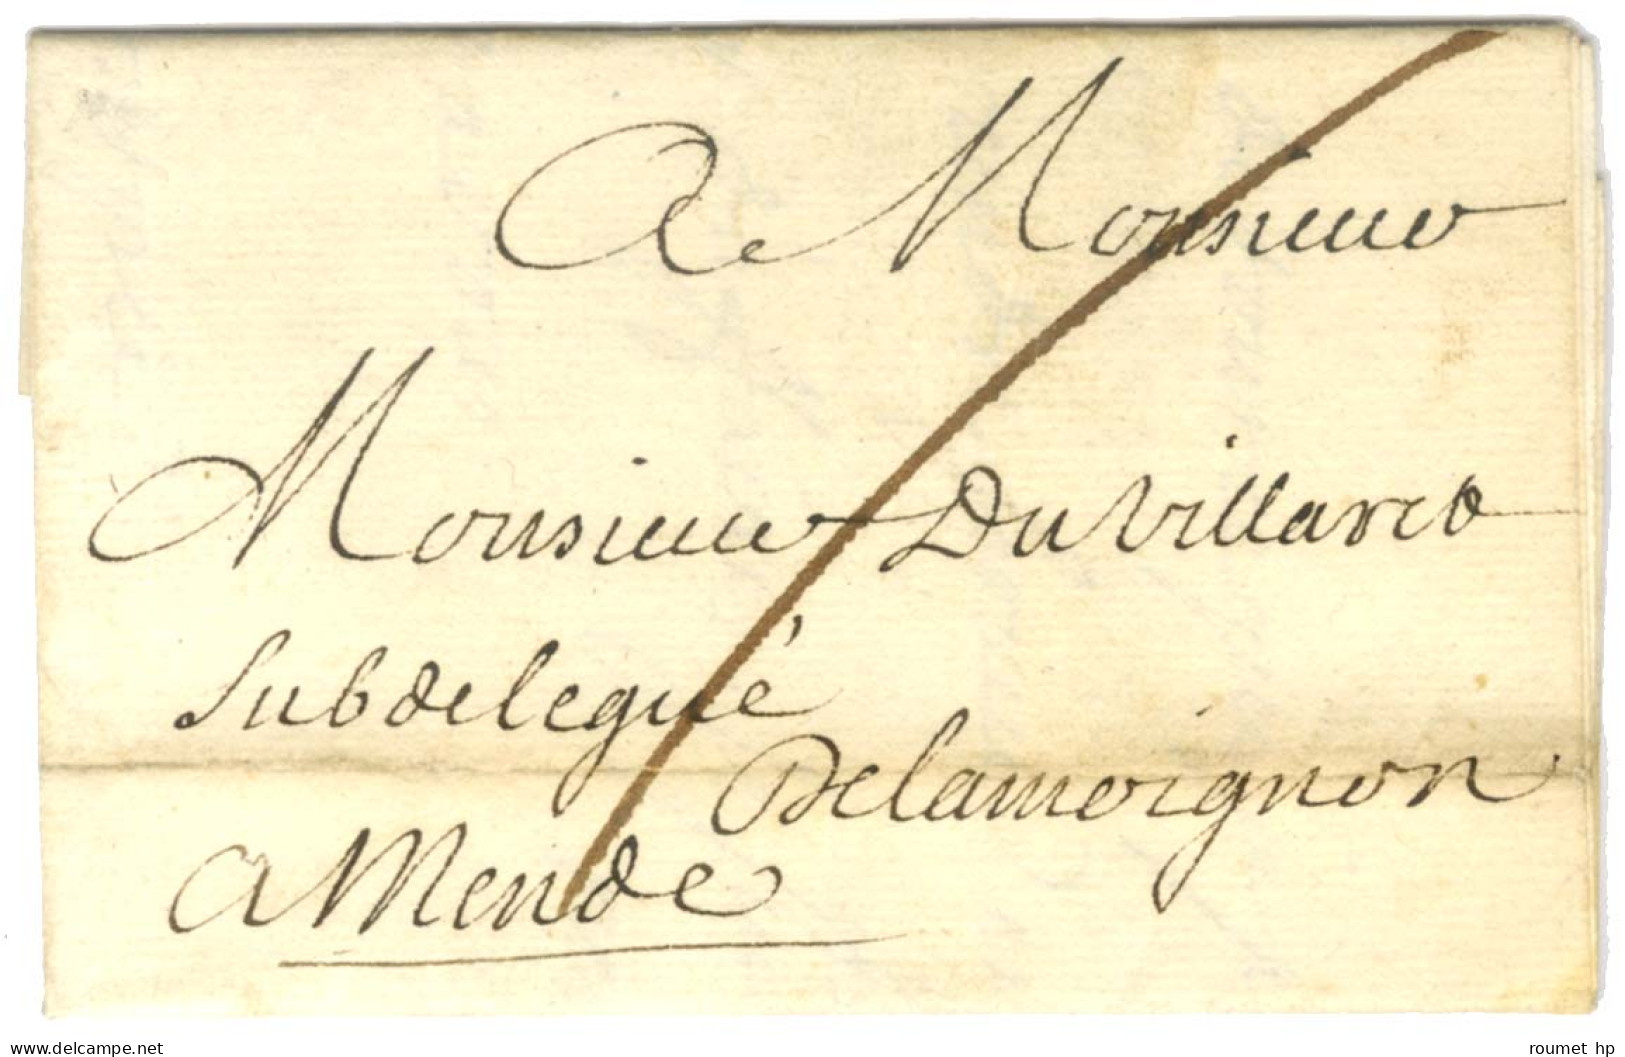 A Monsieur
Monsieur Du Villaret
Subdelegué
Delamoignon
A Mende
www.delcampe.net
roumet hp